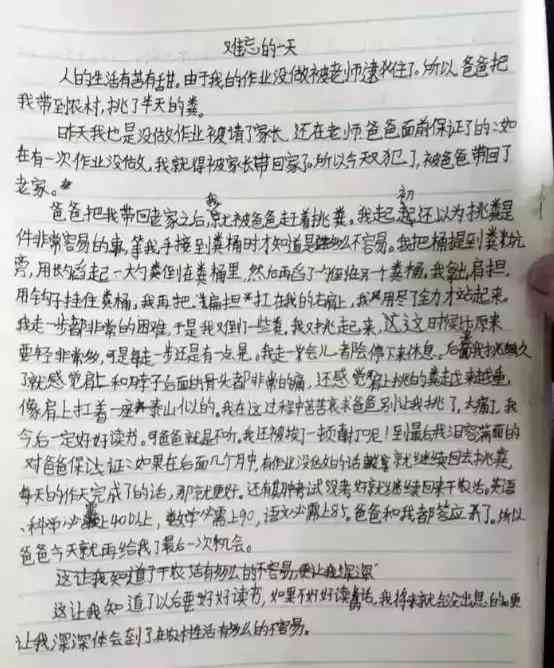 难忘的一天
人的生活有苦有甜。由于我的作业没做被老师逮住了。所以爸爸把
我带到农村,挑了半天的粪。
昨天我也是没做作业被请了家长,还在老师爸爸面前保证了的:如
在有一次作业没做,我就得被家长带回家了。所以今天又犯了,被爸爸带回了
老家。
爸爸把我带回老家之后,我就被爸爸赶着挑粪。我起初还以为挑粪是
件非常容易的事,等我手接到粪桶时才知道是多么不容易。我把桶提到粪坑
旁,用粪舀起一大勺粪倒在粪桶里,然后再舀了一勺倒另一个粪桶。我拿出肩担,
用钩子挂住粪桶,我再把扁担扛在我的右肩上,我用尽了全力才站起来。
我走一步都非常的困难,于是我又倒了一些粪,我又挑走起来,这次时候比原来
要轻非常多,可是每走一步还是有一点晃。我走一会儿都会停下来休息。后面我挑久
了就感觉肩上和脖子后面的骨头都非常的痛,还感觉肩上挑的粪越来越重,
像肩上扛着一座泰山似的。我在这过程中苦苦哀求爸爸别让我挑了,太痛了,我
今后一定好好读书。可爸爸就是不听,我还被挨了一顿打呢!到最后我泪容满面的
对爸爸保证:如果在后面几个月中,有作业没做的话就继续回去挑粪,
每天的作天完成了的话,那就更好。还有期考试没考好就继续回来干农活。英语
、科学必需上40以上,数学必需上90,语文必需上85。爸爸和我都答应了。所以
爸爸今天就再给我了最后一次机会。
这让我知道了干农活有多么的不容易,更让我深深
这让我知道了以后要好好读书,如果不好好读书的话,我将来就会没出息的。更
让我深深体会到了在农村生活有多么的不容易。